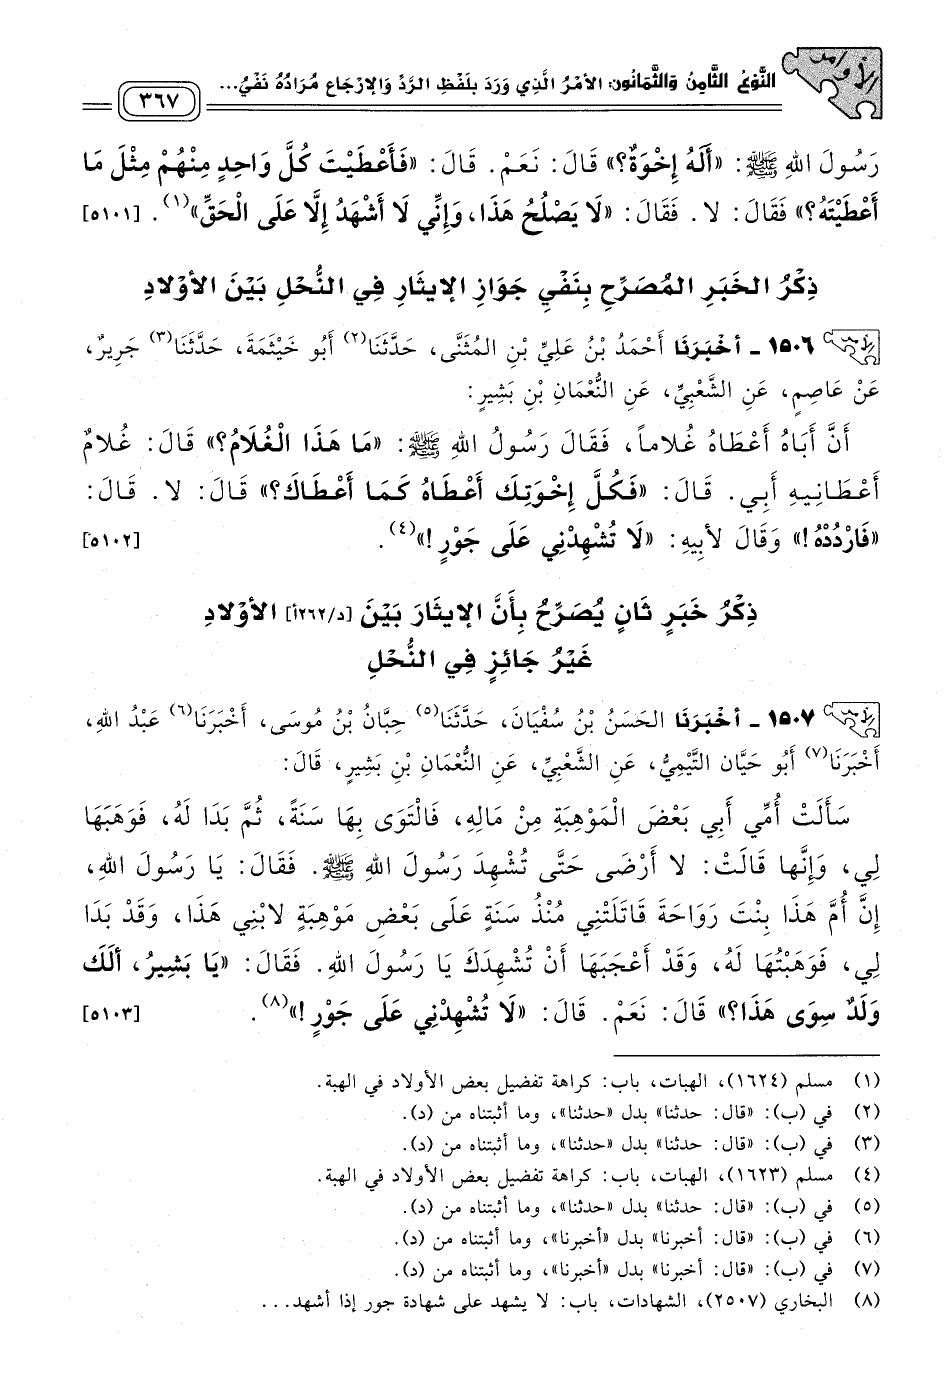 الأوامر
النَّوْعُ الثَّامِنُ وَالثَّمَانُونَ: الأَمْرُ الَّذِي وَرَدَ بِلَفْظِ الرَّدِّ وَالإِرْجَاعِ مُرَادُهُ نَفْيُ...
٣٦٧
رَسُولَ اللهِ ﷺ: «أَلَهُ إِخْوَةٌ؟» قَالَ: نَعَمْ. قَالَ: «فَأَعْطَيْتَ كُلَّ وَاحِدٍ مِنْهُمْ مِثْلَ مَا
أَعْطَيْتَهُ؟» فَقَالَ: لا. فَقَالَ: «لَا يَصْلُحُ هَذَا، وَإِنِّي لَا أَشْهَدُ إِلَّا عَلَى الْحَقِّ»(١). [٥١٠١]
ذِكْرُ الخَبَرِ المُصَرِّحِ بِنَفْيِ جَوَازِ الإِيثَارِ فِي النُّحْلِ بَيْنَ الأَوْلادِ
١٥٠٦ - أَخْبَرَنَا أَحْمَدُ بْنُ عَلِيِّ بْنِ المُثَنَّى، حَدَّثَنَا(٢) أَبُو خَيْثَمَةَ، حَدَّثَنَا(٣) جَرِيرٌ،
عَنْ عَاصِمٍ، عَنِ الشَّعْبِيِّ، عَنِ النُّعْمَانِ بْنِ بَشِيرٍ:
أَنَّ أَبَاهُ أَعْطَاهُ غُلاماً، فَقَالَ رَسُولُ اللهِ ﷺ: «مَا هَذَا الْغُلَامُ؟» قَالَ: غُلامٌ
أَعْطَانِيهِ أَبِي. قَالَ: «فَكُلَّ إِخْوَتِكَ أَعْطَاهُ كَمَا أَعْطَاكَ؟» قَالَ: لا. قَالَ:
«فَارْدُدْهُ!» وَقَالَ لأَبِيهِ: «لَا تُشْهِدْنِي عَلَى جَوْرٍ!»(٤). [٥١٠٢]
ذِكْرُ خَبَرٍ ثَانٍ يُصَرِّحُ بِأَنَّ الإِيثَارَ بَيْنَ [د/٢٦٢أ] الأَوْلادِ
غَيْرُ جَائِزٍ فِي النُّحْلِ
١٥٠٧ - أَخْبَرَنَا الحَسَنُ بْنُ سُفْيَانَ، حَدَّثَنَا(٥) حِبَّانُ بْنُ مُوسَى، أَخْبَرَنَا(٦) عَبْدُ اللهِ،
أَخْبَرَنَا(٧) أَبُو حَيَّان التَّيْمِيُّ، عَنِ الشَّعْبِيِّ، عَنِ النُّعْمَانِ بْنِ بَشِيرٍ، قَالَ:
سَأَلَتْ أُمِّي أَبِي بَعْضَ المَوْهِبَةِ مِنْ مَالِهِ، فَالْتَوَى بِهَا سَنَةً، ثُمَّ بَدَا لَهُ، فَوَهَبَهَا
لِي، وَإِنَّها قَالَتْ: لا أَرْضَى حَتَّى تُشْهِدَ رَسُولَ اللهِ ﷺ. فَقَالَ: يَا رَسُولَ اللهِ،
إِنَّ أُمَّ هَذَا بِنْتَ رَوَاحَةَ قَاتَلَتْنِي مُنْذُ سَنَةٍ عَلَى بَعْضِ مَوْهِبَةٍ لابْنِي هَذَا، وَقَدْ بَدَا
لِي، فَوَهَبْتُهَا لَهُ، وَقَدْ أَعْجَبَهَا أَنْ تُشْهِدَكَ يَا رَسُولَ اللهِ. فَقَالَ: «يَا بَشِيرُ، أَلَكَ
وَلَدٌ سِوَى هَذَا؟» قَالَ: نَعَمْ. قَالَ: «لَا تُشْهِدْنِي عَلَى جَوْرٍ!»(٨). [٥١٠٣]
(١) مسلم (١٦٢٤)، الهبات، باب: كراهة تفضيل بعض الأولاد في الهبة.
(٢) في (ب): «قال: حدثنا» بدل «حدثنا»، وما أثبتناه من (د).
(٣) في (ب): «قال: حدثنا» بدل «حدثنا»، وما أثبتناه من (د).
(٤) مسلم (١٦٢٣)، الهبات، باب: كراهة تفضيل بعض الأولاد في الهبة.
(٥) في (ب): «قال: حدثنا» بدل «حدثنا»، وما أثبتناه من (د).
(٦) في (ب): «قال: أخبرنا» بدل «أخبرنا»، وما أثبتناه من (د).
(٧) في (ب): «قال: أخبرنا» بدل «أخبرنا»، وما أثبتناه من (د).
(٨) البخاري (٢٥٠٧)، الشهادات، باب: لا يشهد على شهادة جور إذا أشهد...